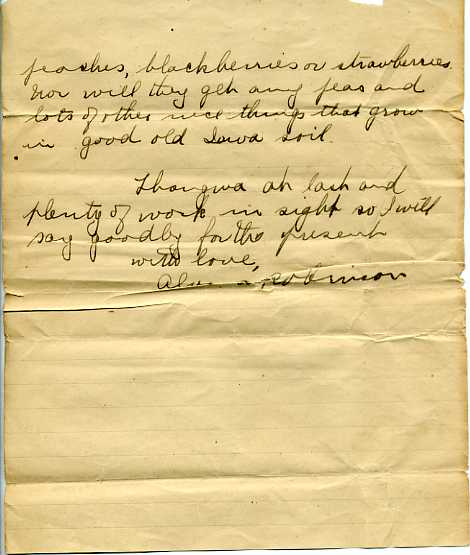 peaches, blackberries or strawberries.
Nor will they get any peas and
lots of other nice things that grow
in good old Iowa soil.
at last and
plenty of work in sight so I will
say goodby for the present
with love,
Robinson